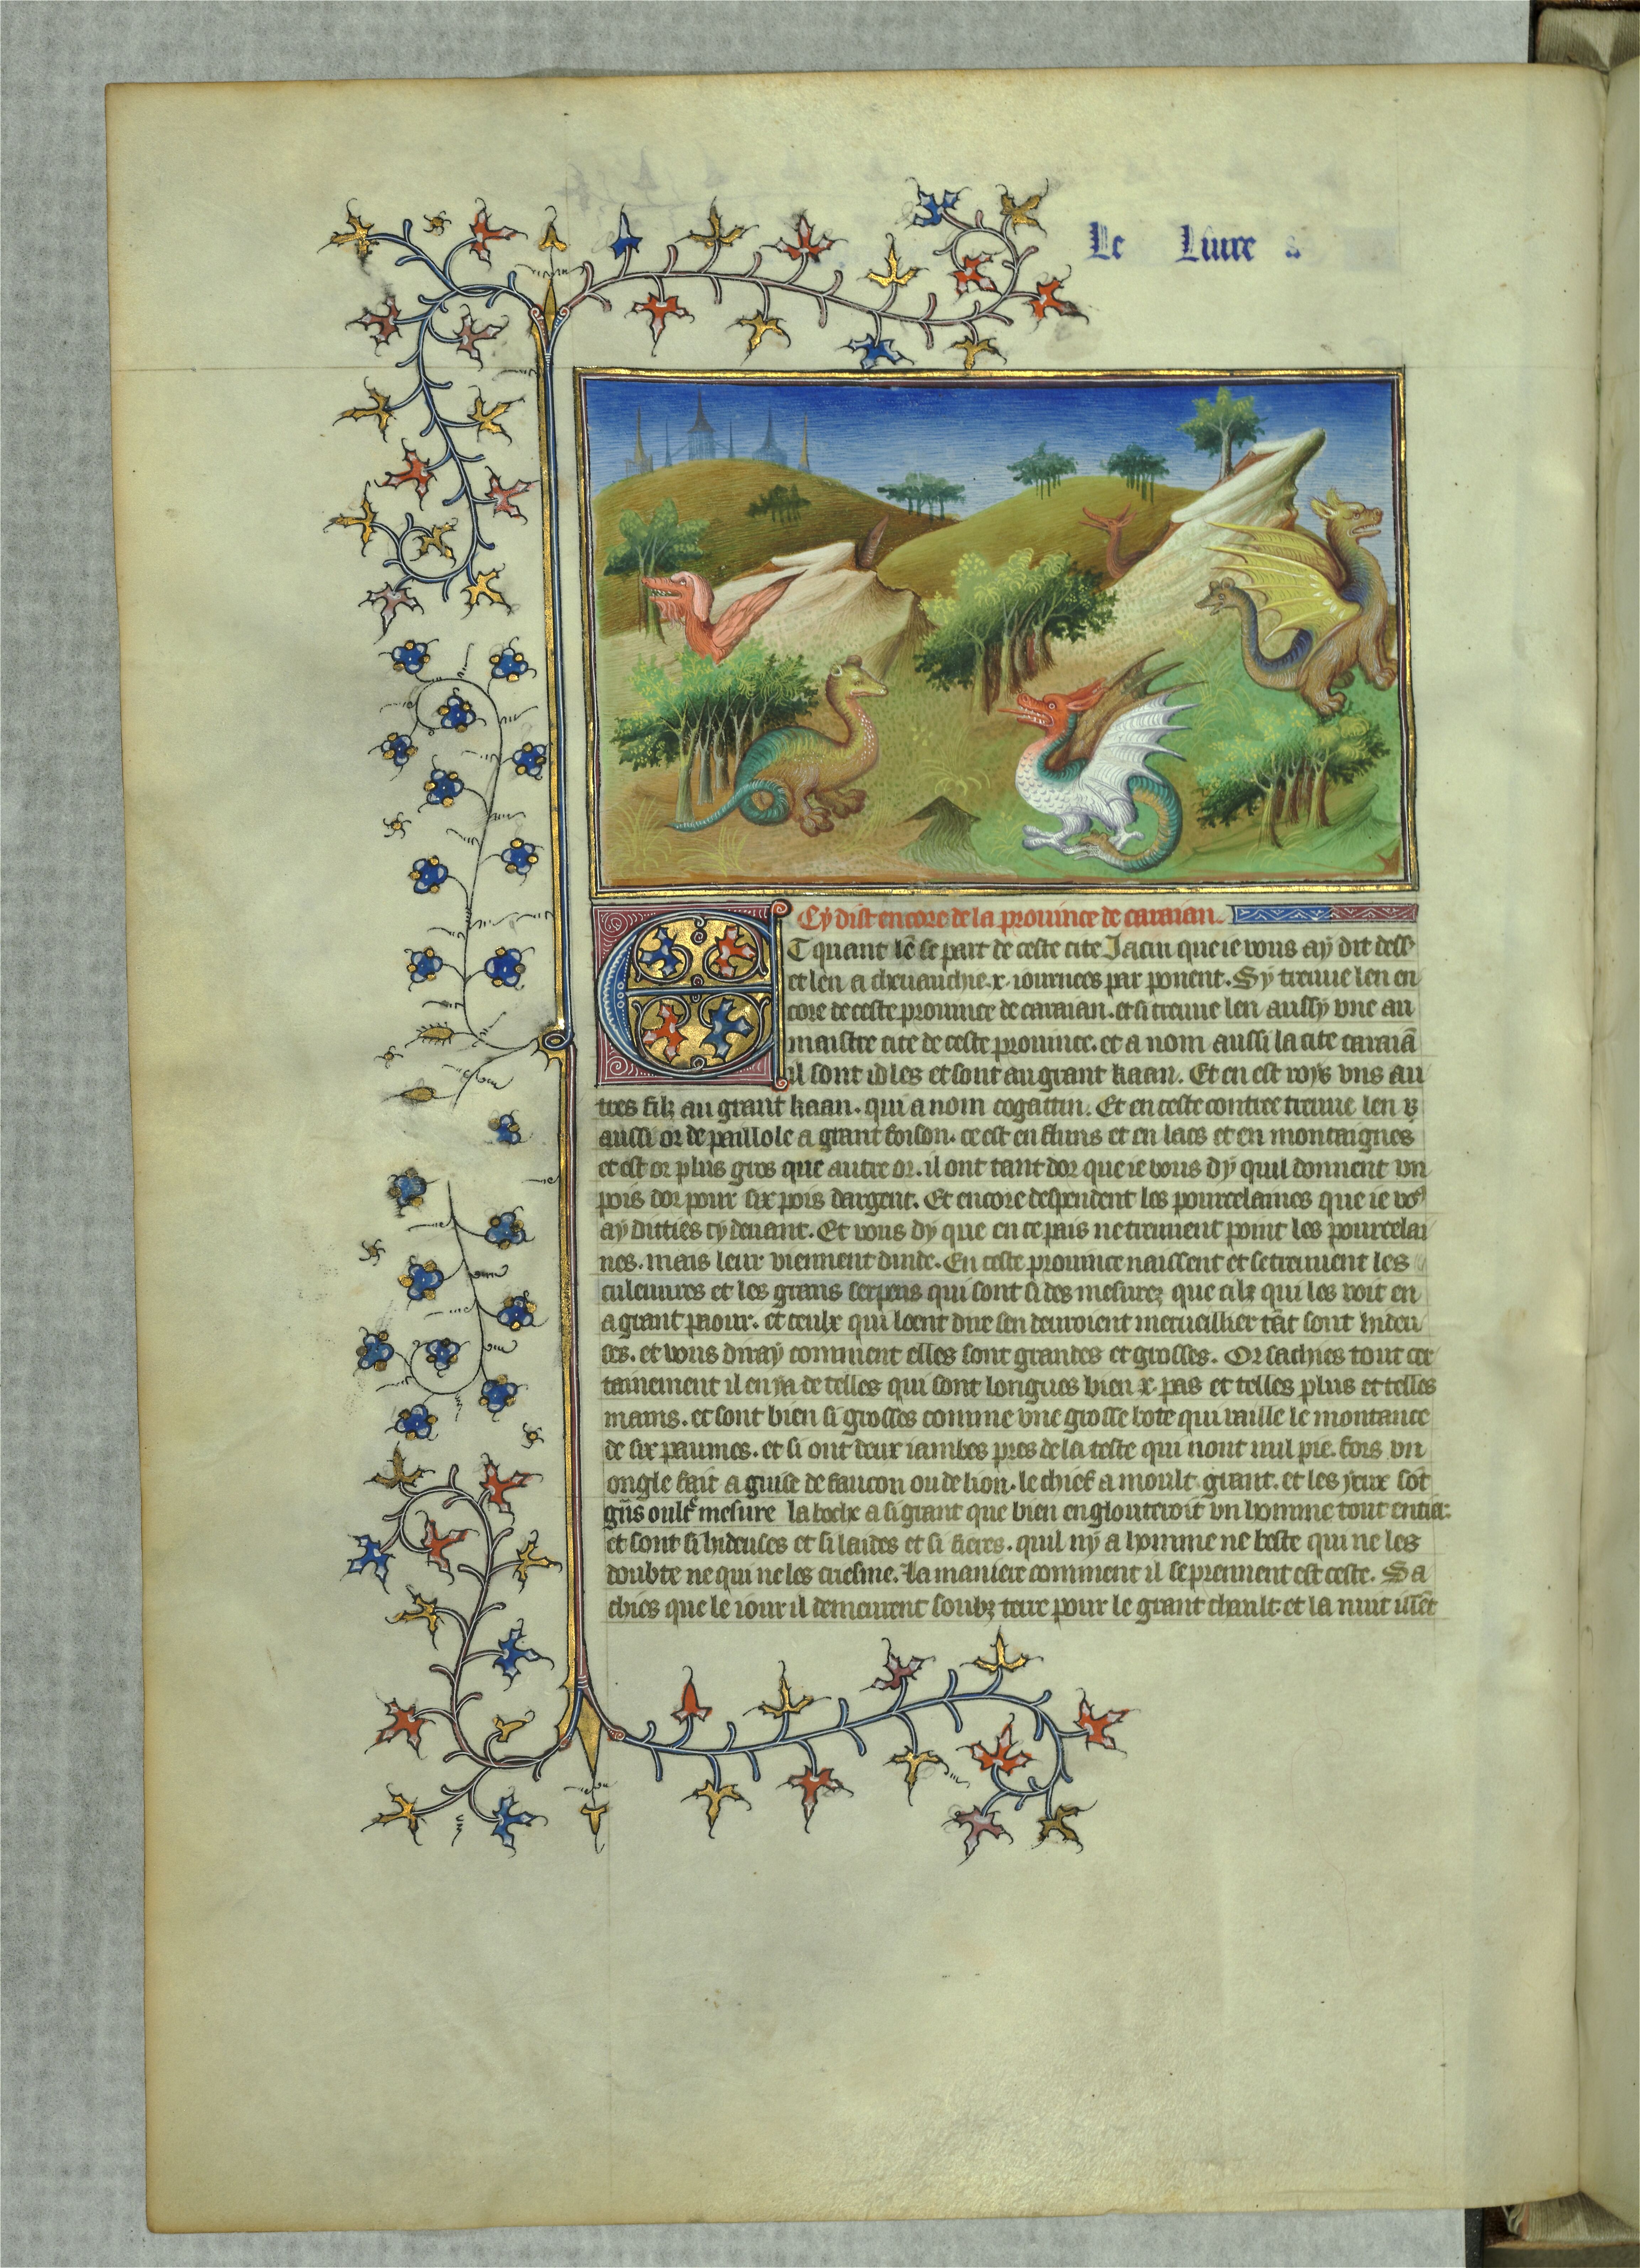 Le Liure
Cy dist encore de la prouince de caraian.
Et quant lē se part de ceste cite Jacin que ie vous ay dit dess
et len a cheuauchie .x. iournees par ponent. Sy treuue len en
core de ceste prouince de caraian. et si treuue len aussy vne au
maistre cite de ceste prouince. et a nom aussi la cite caraiā
il sont ydles et sont au grant kaan. Et en est roys vns au
tres filz au grant kaan. qui a nom cogattin. Et en ceste contree treuue len
aussi or de paillole a grant foison. ce est en fluns et en lacs et en montaignes
et est or plus gros que autre or. il ont tant dor que ie vous dy quil donnent vn
pois dor pour six pois dargent. Et encore despendent les pourcelaines que ie voꝰ
ay dittes cy deuant. Et vous dy que en ce pais ne treuuent point les pourcelai
nes. mais leur viennent dinde. En ceste prouince naissent et se treuuent les
culeuures et les grans serpens qui sont si des mesurez que cilz qui les voit en
a grant paour. et ceulx qui loent dire sen deuroient merueillier tāt sont hideu
ses. et vous diray comment elles sont grandes et grosses. Or sachies tout cer
tainement il en ya de telles qui sont longues bien .x. pas et telles plus et telles
mains. et sont bien si grosses comme vne grosse bote qui vaille le montance
de six paumes. et si ont deux iambes pres de la teste qui nont nul pie. fors vn
ongle fait a guise de faucon ou de lion. le chief a moult grant. et les yeux sōt
grās oultr mesure la boche a si grant que bien engloutiroit vn homme tout entier.
et sont si hideuses et si laides et si fieres. quil ny a homme ne beste qui ne les
doubte ne qui ne les criesme. La maniere comment il se prennent est ceste. Sa
chies que le iour il demeurent soubz terre pour le grant chault et la nuit